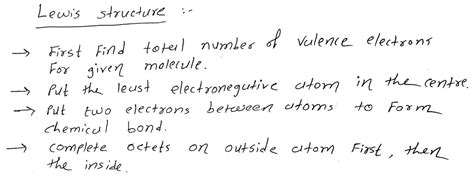 Lewis structure :-
→ First find total number of valence electrons
for given molecule.
→ Put the least electronegative atom in the centre.
→ Put two electrons between atoms to form
chemical bond.
→ complete octets on outside atom first, then
the inside.